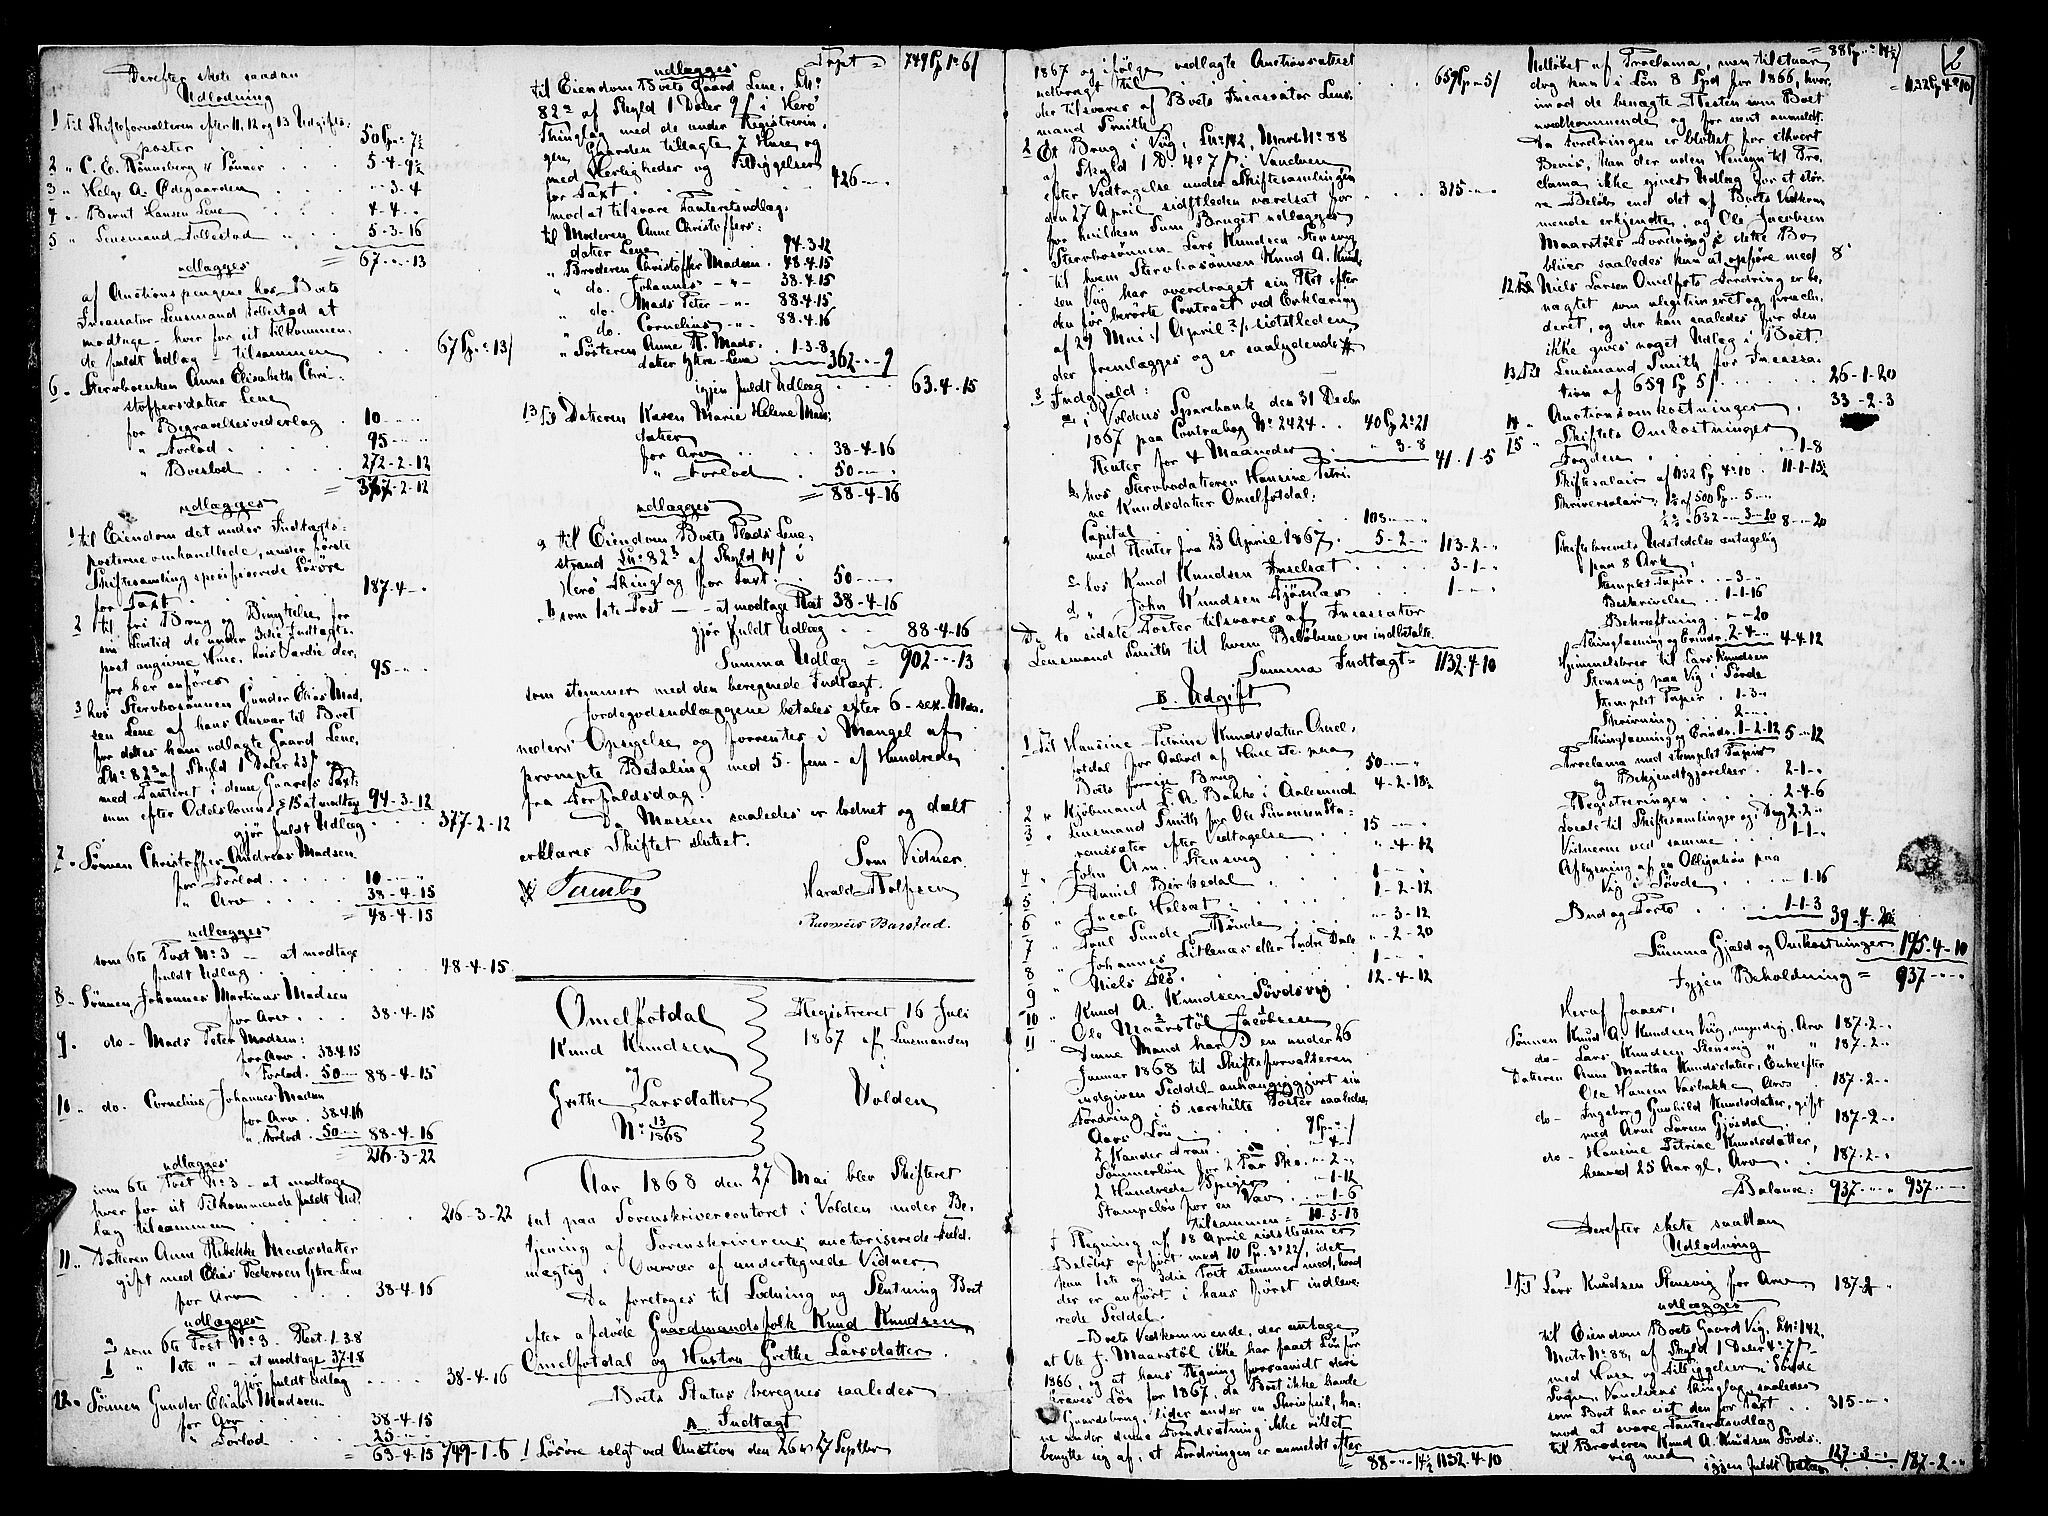 Derefter skete saadan
Udlodning
1 Til Skifteforvalteren efter 11, 12 og 13 Udgifts-
poster 50 Sp. " 7½
2 " C. E. Rönneberg & Sönner 5-4-9½
3 " Helge A. Ödegaarden "-3-4
4 " Bernt Hansen Lene 4-4-"
5 " Lensmand Follestad 5-3-16
= 67-"-13
udlægges
af Auctionspengene hos Boets
Incassator Lensmand Follestad at
modtage - hver for sit Tilkommen-
de fuldt Udlæg - tilsammen 67 Sp. " 13 /
6 " Stervboenken Anne Elisabeth Chri-
stoffersdatter Lene
for Begravelsesvederlag 10
" Forlod 95
" Boeslod 272-2-12
= 377-2-12
udlægges
1 til Eiendom det under Indtægts-
posterne omhandlede, under förste
Skiftesamling specificerede Lösöre
for Taxt 187-4-"
2 til fri Brug og Benyttelse for
sin Livstid de under 3die Indtægts-
post angivne Huse, hvis Værdie der-
for her anföres 95
3 hos Stervbosönnen Gunder Elias Mad-
sen Lene af hans Ansvar til Boet
for dettes ham udlagte Gaard Lene,
LNº 82ª af Skyld 1 Daler 23 β og
med Panteret i denne Gaards Taxt
som efter Oddelslovens § 15 at modtage 94-3-12
gjör fuldt Udlæg 377-2-12
7 " Sönnen Christoffer Andreas Madsen
for Forlod 10
" Arv 38-4-15
= 48-4-15
udlægges
som 6te Post Nº 3 - at modtage
fuldt Udlæg 48-4-15
8 " Sönnen Johannes Martinus Madsen
for Arv 38-4-15
9 " do - Mads Peter Madsen:
for Arv 38-4-15
" Forlod 50 88-4-15
10 " do - Cornelius Johannes Madsen
for Arv 38-4-16
" Forlod 50 88-4-16
= 216-3-22
udlægges
som 6te Post Nº 3 - at modtage
hver for sit Tilkommende fuldt Ud-
læg tilsammen 216-3-22
11 " Datteren Anne Rebekke Madsdatter
gift med Elias Pedersen Ytre-Lene
for Arv 38-4-16
udlægges
a som 6te Post Nº 3. Rest 1-3-8
b " 1ste " - at modtage 37-1-8
gjör fuldt Udlæg 38-4-16
12 " Sönnen Gunder Elias Madsen
for Arv 38-4-15
" Forlod 25
= 63-4-15 749-1-6
Tspt = 749 Sp 1 " 6 /
udlægges
til Eiendom Boets Gaard Lene, LNº
82ª af Skyld 1 Daler 9 β i Herö
Thinglag med de under Registrerin-
gen Gaarden tillagte 7 Huse og
med Herligheder og Tilliggelser
for Taxt 426
mod at tilsvare Panteretsudlæg,
til Moderen Anne Christoffers-
datter Lene 94-3-12
" Broderen Christoffer Madsen 48-4-15
" do. Johannes - " - 38-4-15
" do. Mads Peter - " - 88-4-15
" do. Cornelius - " - 88-4-16
" Sösteren Anne R. Mads-
datter Ytre-Lene 1-3-8
362-"-9
igjen fuldt Udlæg 63-4-15
13 Til Datteren Karen Marie Helene Mads-
datter
for Arv 38-4-16
" Forlod 50
= 88-4-16
udlægges
a til Eiendom Boets Plads Lene-
strand LNº 82ᵇ af Skyld 14 β i
Herö Thinglag for Taxt 50
b som 1ste Post - - at modtage Rest 38-4-16
gjör fuldt Udlæg 88-4-16
Summa Udlæg = 902-"-13
som stemmer med den beregnede Indtægt.
Jordegodsudlæggene betales efter 6 - sex - Maa-
neders Opsigelse og forrentes i Mangel af
prompte Betaling med 5 - fem - af Hundrede
fra Forfaldsdag.
Da Massen saaledes er lodnet og deelt
erklæres Skiftet sluttet.
Som Vidner
Harald Rolfsen
Rasmus Barstad.
Omelfotdal
Knud Knudsen
og
Grethe Larsdatter
Nº 13/1868
Registreret 16 Juli
1867 af Lensmanden
i
Volden
Aar 1868 den 27 Mai blev Skifteret
sat paa Sorenskrivercontoret i Volden under Be-
tjening af Sorenskriverens auctoriserede Fuld-
mægtig i Overvær af undertegnede Vidner
Da foretoges til Lodning og Slutning Boet
efter afdöde Gaardmandsfolk Knud Knudsen
Omelfotdal og Hustru Grethe Larsdatter.
Boets Status beregnes saaledes
A. Indtægt
1 Lösöre solgt ved Auction den 26 og 27 Septbr
1867 og ifölge vedlagte Auctionsbrev
udbragt til 659 Sp " 5 /
der tilsvares af Boets Incassator Lens-
mand Smith
2 Et Brug i Vig, LNº 142, Matr. Nº 88
af Skyld 1 D. 4 " 7 β i Vandven
efter Vedtagelse under Skiftesamlingen
den 27 April sidstleden værdsat for 315
for hvilken Sum Bruget udlægges
Stervbosönnen Lars Knudsen Stensvig
til hvem Stervbosönnen Knud A. Knud-
sen Vig har overdraget sin Ret efter
den för berörte Contract ved Erklæring
af 27 Mai / April ? / sidstleden
der fremlægges og er saalydende #
3 Indgjæld:
a i Voldens Sparebank den 31 Decbr
1867 paa Contrabog Nº 2424 40 Sp 2 " 21
Renter for 4 Maaneder " 3-8 41-1-5
b hos Stervbodatteren Hansine Petri-
ne Knudsdatter Omelfotdal:
Capital 108
med Renter fra 23 Aprile 1867 5-2-" 113-2-"
c hos Knud Knudsen Inselsæt 3-1-"
d " John Knudsen Sjöenæs 1
De to sidste Poster tilsvares af Incassator
Lensmand Smith til hvem Belöbene ere indbetalte.
Summa Indtægt = 1132-4-10
B. Udgift
1 Til Hansine Petrine Knudsdatter Omel-
fotdal for Aabod af Huse etc. paa
Boets forrige Brug 50
2 " Kjöbmand E. A. Bakke i Aalesund 4-2-18½
3 " Lensmand Smith for Ole Simonsen Sta-
rensæter efter Vedtagelse 15
4 " John Am. Stensvig "-4-12
5 " Daniel Berkedal 1
6 " Jacob Helsæt 1-2-12
7 " Poul Sunde, Rönde "-3-12
8 " Johannes Litlenæs eller Indre Dale "-2-20
9 " Niels Flö 1
10 " Knud A. Knudsen Sövdsvig 12-4-12
11 " Ole Maarstöl Jacobsen
Denne Mand har i en under 26
Januar 1868 til Skifteforvalteren
indgiven Seddel anhængiggjort sin
Fordring i 5 særskilte Poster saaledes
Aars Lön 9 Sp " " /
2 Kander Tran " 4 "
Sömmerlön for 2 Par Sko " 2 "
2 Hundrede Spiger " 1-12
Stampelön for en Væv " 1-6
tilsammen = 10-3-18
I Regning af 18 April sidstleden er
Belöbet opfört med 10 Sp. 3 " 22 /, idet
kun 1ste og 3die Post stemmer med, hvad
der er anfört i hans först indleve-
rede Seddel.
Boets Vedkommende, der antage
at Ole J. Maarstöl ikke har faaet Lön for
1866, og at hans Regning forsaavidt dere
kræves Lön for 1867, da Boet ikke havde
Gaardsbrug, lider under en Skrivfeil, ha-
ve under denne Forudsætning ikke villet
benytte sig af, at Fordringen er anmeldt efter
= 88-"-14½ 1132-4-10
2
= 88 Sp " 14½ /
= 1132 Sp 4 " 10 /
Udlöbet af Proclama, men tilstaar
dog kun i Lön 8 Spd for 1866, hvor-
imod de benægte Resten som Boet
uvedkommende og for sent anmeldt.
Da Fordringen er blottet for ethvert
Beviis, kan der uden Hensyn til Pro-
clama ikke gives Udlæg for et stör-
re Belöb end det af Boets Vedkom-
mende erkjendte, og Ole Jacobsen
Maarstöls Fordring i dette Bo
bliver saaledes kun at opföre med 8
12 Til Niels Larsen Omelfots Fordring er be-
nægtet som ulegitimeret og præclu-
deret, og der kan saaledes for den
ikke gives noget Udlæg i Boet.
13 Til Lensmand Smith for Incassa-
tion af 659 Sp 5 / 26-1-20
14 " Auctionsomkostninger 33-2-3
15 " Skiftets Omkostninger
Fogden "-1-8
Skiftesalair af 1132 Sp 4 " 10 11-1-15½
Skriversalair, 1% af 500 Sp - 5
½% " 632 - 3-"-20 8-"-20
Skiftebrevets Udstedelse antagelig
paa 8 Ark:
Stemplet Papir "-3-"
Beskrivelse 1-1-16
Bekræftning "-"-20
Thinglæsning og Erindr. 2-4-" 4-4-12
Hjemmelsbrev til Lars Knudsen
Stensvig paa Vig i Sövde
Stemplet Papir 1-3-"
Skrivning 2
Thinglæsning og Erindr. 1-2-12 5-"-12
Proclama med stemplet Papir
og Bekjendtgjörelser 2-1-"
Registreringen 2-4-6
Locale til Skiftesamlinger og i Dag 2-2-"
Vidnerne ved samme 1-1-"
Aflysning af en Obligation paa
Vig i Sövde "-1-16
Bud og Porto 1-1-3 39-4-2½
Summa Gjæld og Omkostninger 195-4-10
Igjen Beholdning = 937
Heraf faaer:
Sönnen Knud A. Knudsen Vig, myndig, Arv 187-2-"
do - Lars Knudsen Stensvig " " 187-2-"
Datteren Anne Martha Knudsdatter, Enke efter
Ole Hansen Vasbakke Arv 187-2-"
do - Ingeborg Gunhild Knudsdatter, gift
med Arne Larsen Gjösdal 187-2-"
do - Hansine Petrine Knudsdatter,
henved 25 Aar gl., Arv 187-2-"
Balance: 937 937
Derefter skete saadan
Udlodning
1 Til Lars Knudsen Stensvig for Arv 187-2-"
udlægges
til Eiendom Boets Gaard Vig, LNº 142,
Matr Nº 88, af Skyld 1 Daler 4 " 7 β
med Huse og Tilliggelser i Sövde
Sogn, Vanelvens Thinglag, saaledes
som Boet har eiet den for Taxt 315
mod at svare Panteretsudlæg
til Broderen Knud A. Knudsen Sövds-
vig med 127-3-"
igjen fuldt Udlæg 187-2-"